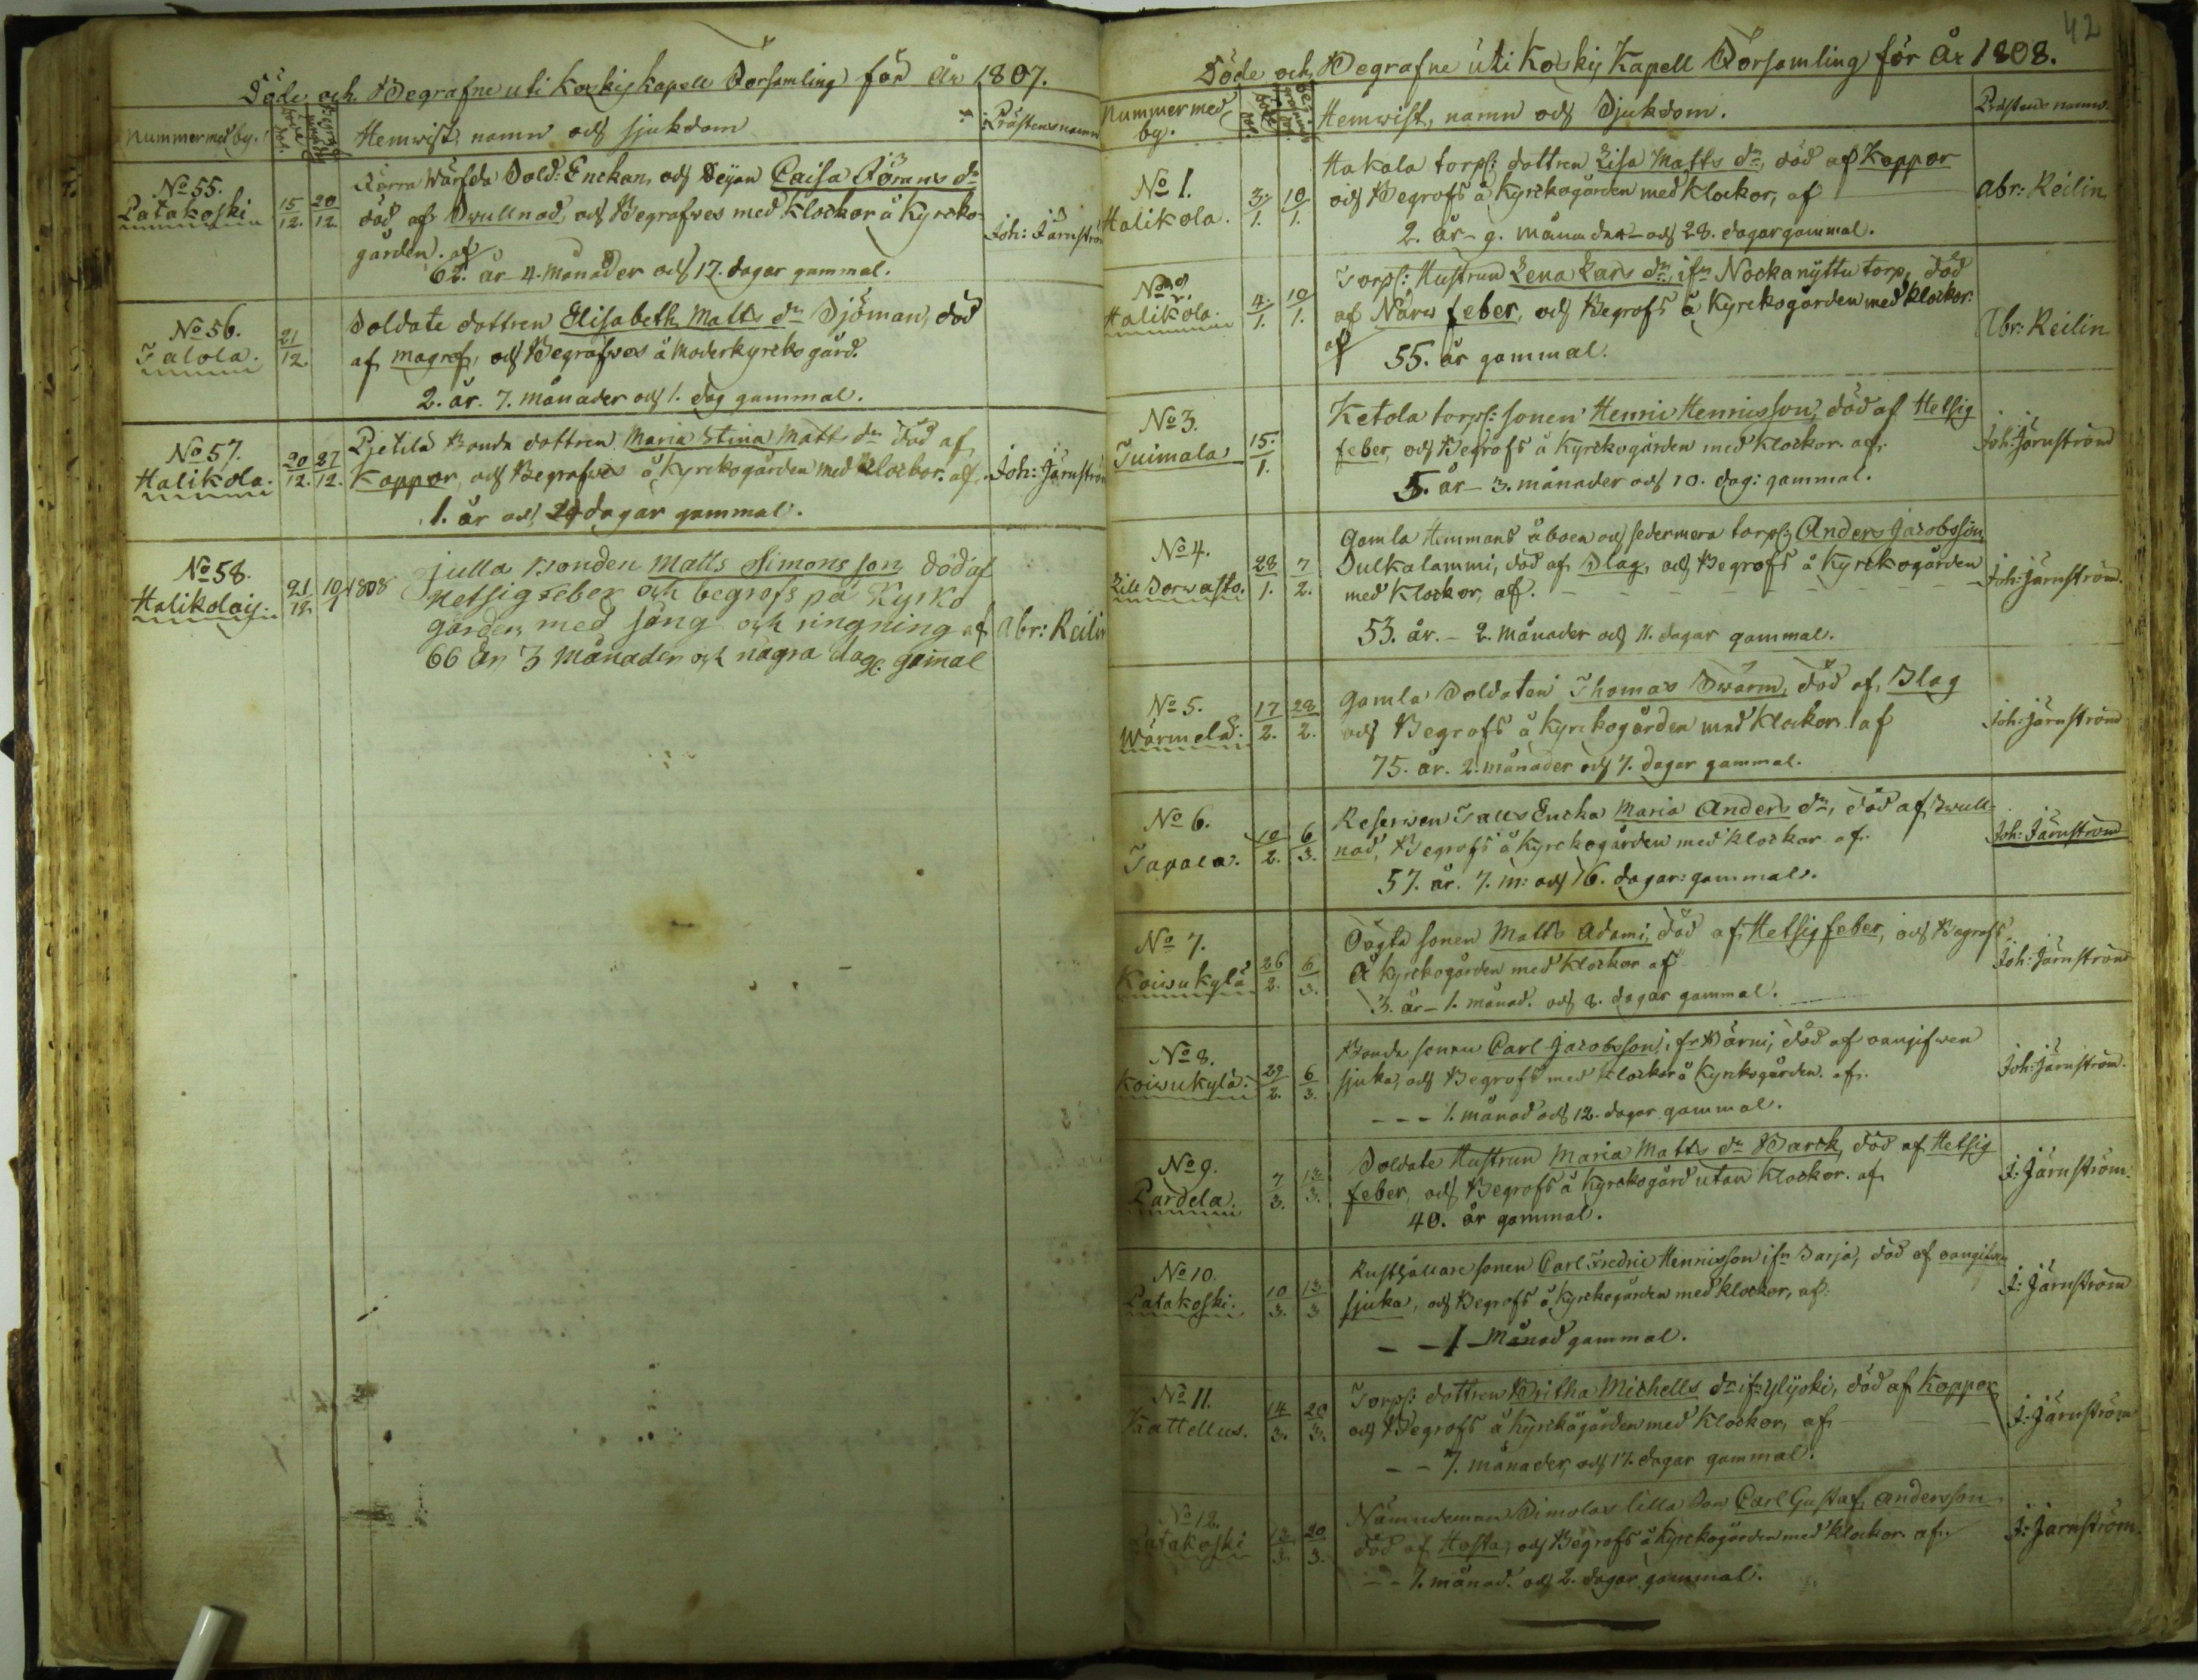 Döde och Begrafne uti Koskis Kapell Församling för År 1807.
Nummer med by. Hemwist, namn och sjukdom Prästens namn
No 55. Patakoski 15/12. 20/12. Wärfda Sold: Enckan, och Caisa
död af Swullnad, och Begrafwes med Klockor å Kyrcko-
gården. af Joh: Järnström
62. år 4. månader och 17. dagar gammal.
No 56. Talola. 21/12. Soldate dottren Elisabeth Matts dr Sjöman, död
af magref, och Begrafwes å moderkyrcko gård.
2. år. 7. månader och 1. dag gammal.
No 57. Halikola. 20/12. 27/12. Pietilä Bonde dottren Maria Stina Matts dr död af
Koppor, och Begrafwes å Kyrckogården med Klockor. af. Joh: Järnström
1. år och 29 dagar gammal.
No 58. Halikola 21/12. 10/1 1808 Julla Bonden Matts Simonsson död af
Hetsig feber och begrofs på Kyrko
gården med sång och ringning af Abr: Reilin
66 år 3 månader och några dag. gamal
42
Döde och Begrafne uti Koskis Kapell Församling för År 1808.
Nummer med by. Hemwist, namn och Sjukdom. Prästens namn.
No 1. Halikola. 3/1. 10/1. Hakala torps: dottren Lisa Matts dr, död af Koppor
och Begrofs å Kyrckogården med Klockor, af Abr: Reilin
2. år - 9. månader - och 28. dagar gammal.
No 2. Halikola. 4/1. 10/1. Torps: Hustrun Lena Lars dr ifrn Nockanyttu torp, död
af Närw feber, och Begrofs å Kyrckogården med Klockor.
af Abr: Reilin
55. år gammal.
No 3. Tuimala 15/1. Ketola torps: sonen Henric Henricsson, död af Hetsig
feber, och Begrofs å Kyrckogården med Klockor. af. Joh: Järnström
5. år - 3. månader och 10. dag: gammal.
No 4. 28/1. 7/2. Gamla Hemmans åboen och sedermera torps: Anders Jacobsson
Sulkalammi, död af Slag, och Begrofs å Kyrckogården
med Klockor, af. Joh: Järnström.
53. år. - 2. månader och 11. dagar gammal.
No 5. Wärmelä. 17/2. 28/2. Gamla Soldaten Thomas Swärm, död af Slag
och Begrofs å Kyrckogården med Klockor. af Joh: Järnström
75. år. 2. månader och 7. dagar gammal.
No 6. Tapala. 10/2. 6/3. Reserwen Talls Encka Maria Anders dr, död af Swull-
nad, Begrofs å Kyrckogården med klockor af. Joh: Järnström
57. år. 7. m: och 16. dagar: gammal.
No 7. Koiwukylä 26/2. 6/3. sonen Matts Adami, död af Hetsig feber, och Begrofs
å Kyrckogården med Klockor af Joh: Järnström
3. år - 1. månad. och 8. dagar gammal.
No 8. Koiwukylä. 29/2. 6/3. Bonde sonen Carl Jacobsson, ifr Pärni, död af oangifwen
sjuka, och Begrofs med Klockor å Kyrckogården. af. Joh: Järnström.
- - - 1. månad och 12. dagar gammal.
No 9. Pardela. 7/3. 13/3. Soldate Hustrun Maria Matts dr Barck, död af Hetsig
feber, och Begrofs å Kyrckogård utan Klockor. af J: Järnström.
40. år gammal.
No 10. Patakoski. 10/3. 13/3 Rusthållare sonen Carl Fredric Henricsson ifrn Sarja, död af oangifwen
sjuka, och Begrofs å Kyrckogården med Klockor, af. J: Järnström
- - 1 - Månad gammal.
No 11. Kattellus. 14/3. 20/3. Torps: dottren Britha Michells dr ifrn Ylijoki, död af Koppor
och Begrofs å Kyrckogården med Klockor, af J: Järnström
- - 7. månader, och 17. dagar gammal.
No 12. Patakoski 13/3. 20/3. Nämndeman Simolas lilla Son Carl Gustaf Andersson
död af Hosta, och Begrofs å Kyrckogården med Klockor. af. J: Järnström.
- - 1. månad. och 2. dagar gammal.